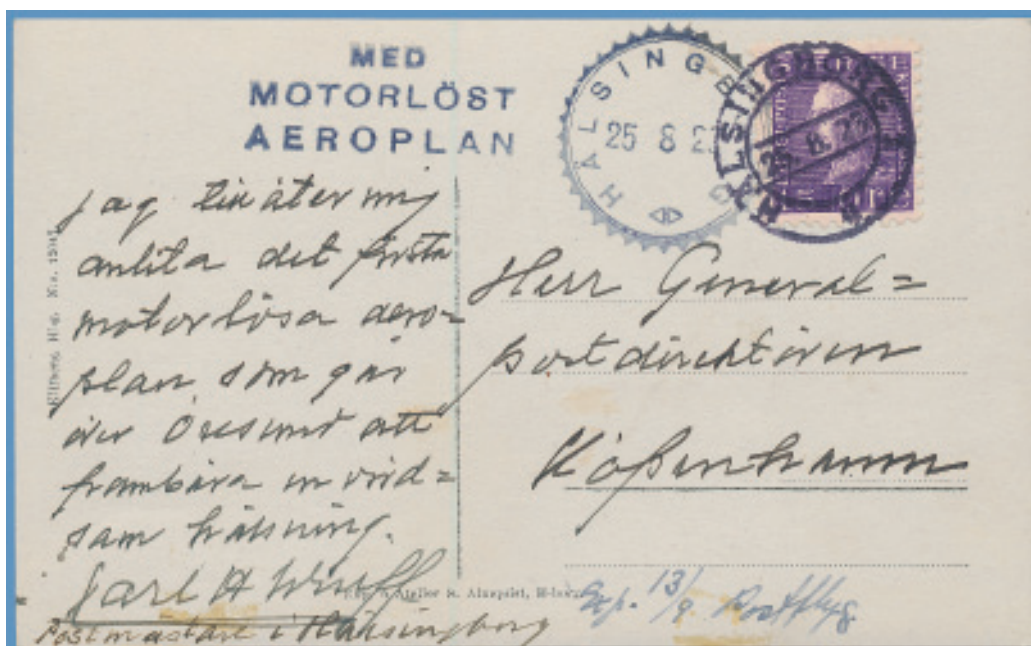 MED
MOTORLÖST
AEROPLAN
HÄLSINGB G
25 8 23
HÄLSINGBORG
25. 8. 23
Jag tillåter mig
anlita det första
motorlösa aero-
plan som går
över Öresund att
frambära en vörd=
sam hälsning.
Carl A Wulff
Postmästare i Hälsingborg
Herr General=
postdirektören
Köpenhamn
Atelier
Exp. 13/9. Postflyg.